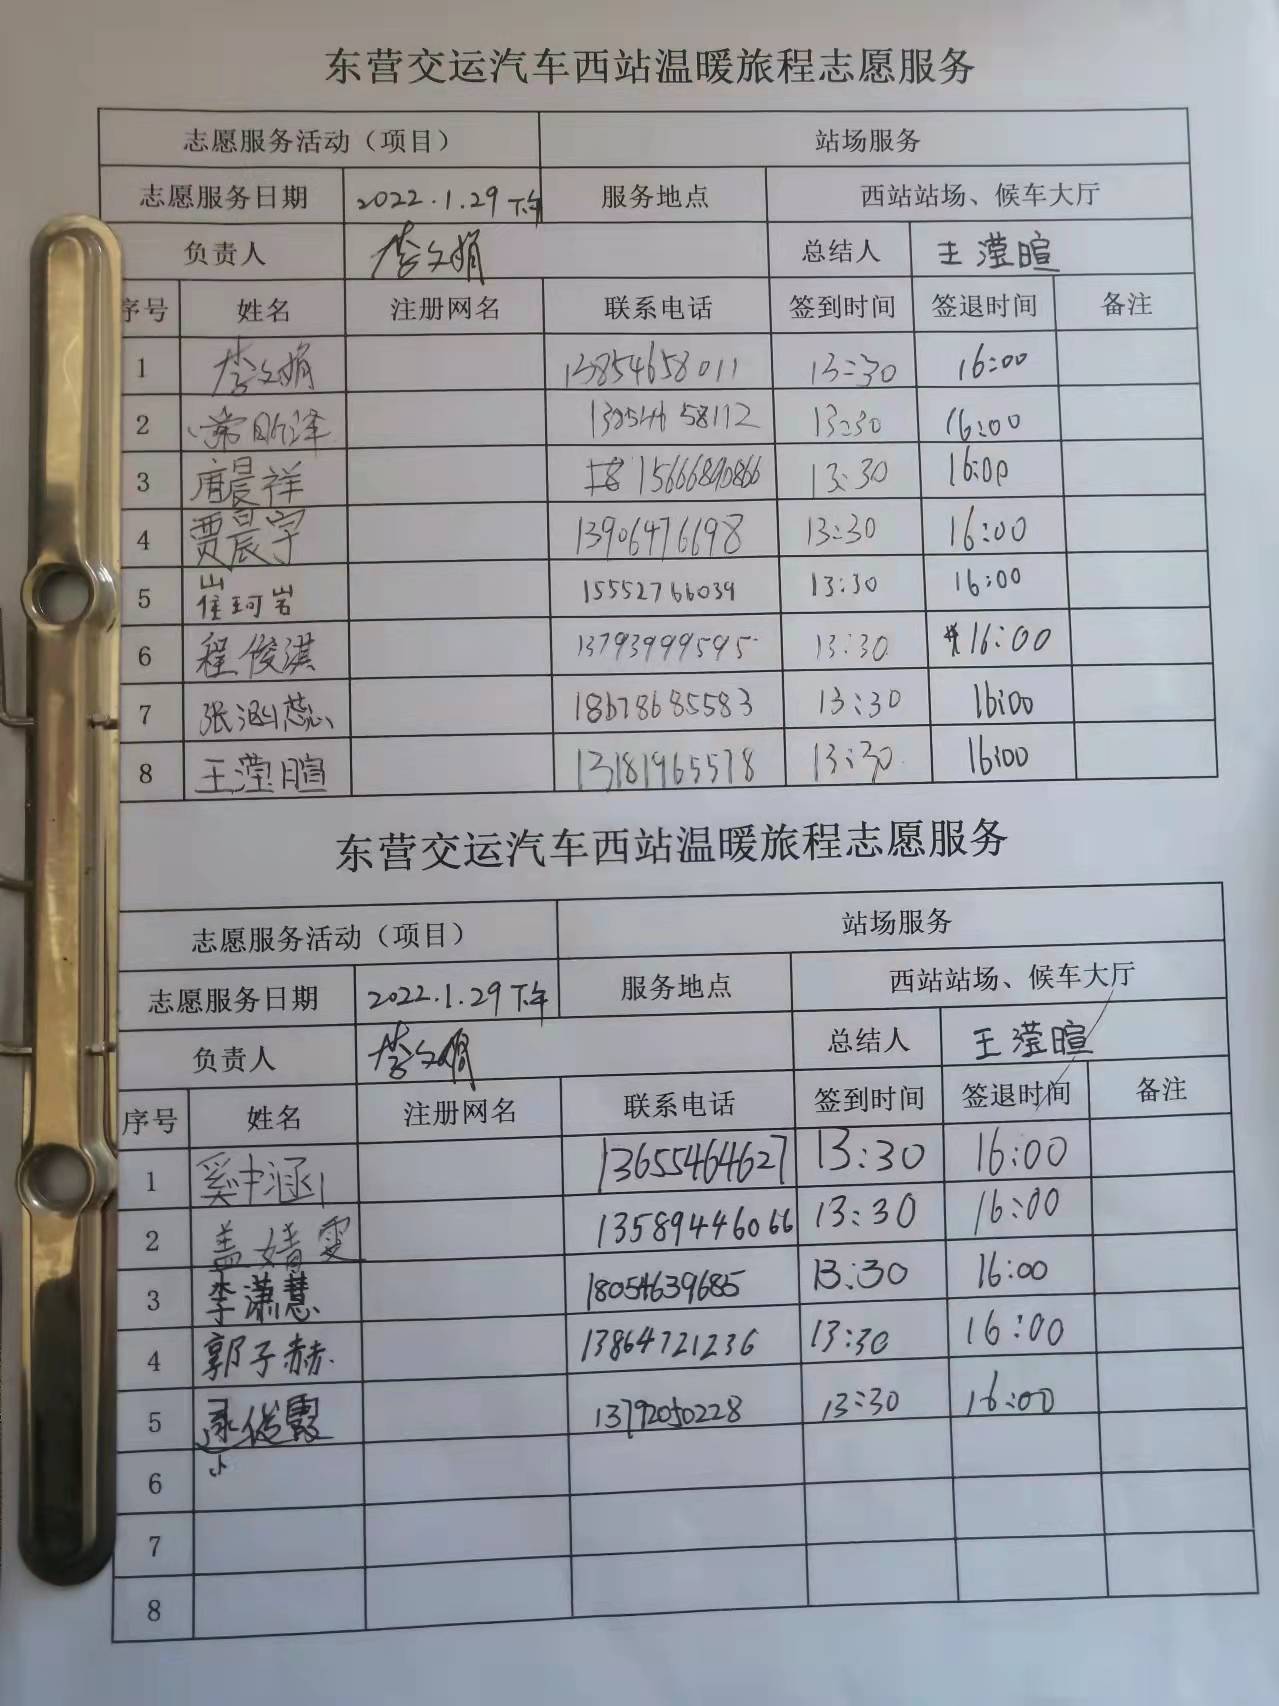 东营交运汽车西站温暖旅程志愿服务
志愿服务活动（项目） 站场服务
志愿服务日期 2022.1.29下午 服务地点 西站站场、候车大厅
负责人 李文娟 总结人 王滢暄
序号 姓名 注册网名 联系电话 签到时间 签退时间 备注
1 李文娟 13854658011 13:30 16:00
2 常昕泽 13:30 16:00
3 唐晨祥 15666890866 13:30 16:00
4 贾晨宇 13906476698 13:30 16:00
5 崔珂岩 15552766039 13:30 16:00
6 程俊淇 13793999595 13:30 16:00
7 张涵蕊 18678685583 13:30 16:00
8 王滢暄 13181965578 13:30 16:00
东营交运汽车西站温暖旅程志愿服务
志愿服务活动（项目） 站场服务
志愿服务日期 2022.1.29下午 服务地点 西站站场、候车大厅
负责人 李文娟 总结人 王滢暄
序号 姓名 注册网名 联系电话 签到时间 签退时间 备注
1 奚中涵 13655464627 13:30 16:00
2 盖婧雯 13589446066 13:30 16:00
3 李潇慧 18054639685 13:30 16:00
4 郭子赫 13864721236 13:30 16:00
5 13792050228 13:30 16:00
6
7
8